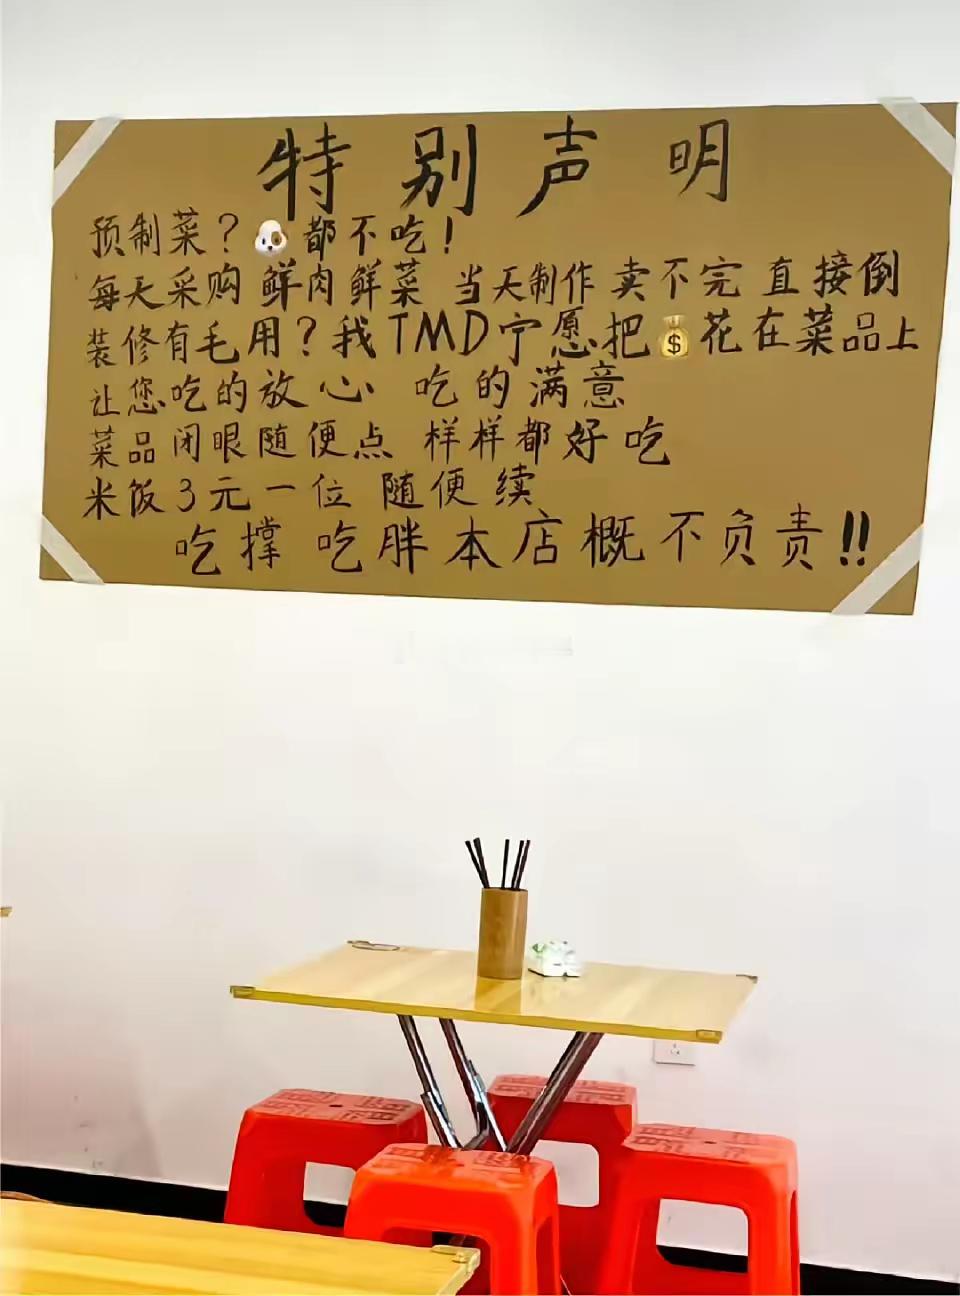 特别声明
预制菜？🐶都不吃！
每天采购 鲜肉鲜菜 当天制作 卖不完 直接倒
装修有毛用？我TMD宁愿把💰花在菜品上
让您吃的放心 吃的满意
菜品闭眼随便点 样样都好吃
米饭3元一位 随便续
吃撑 吃胖本店概不负责!!